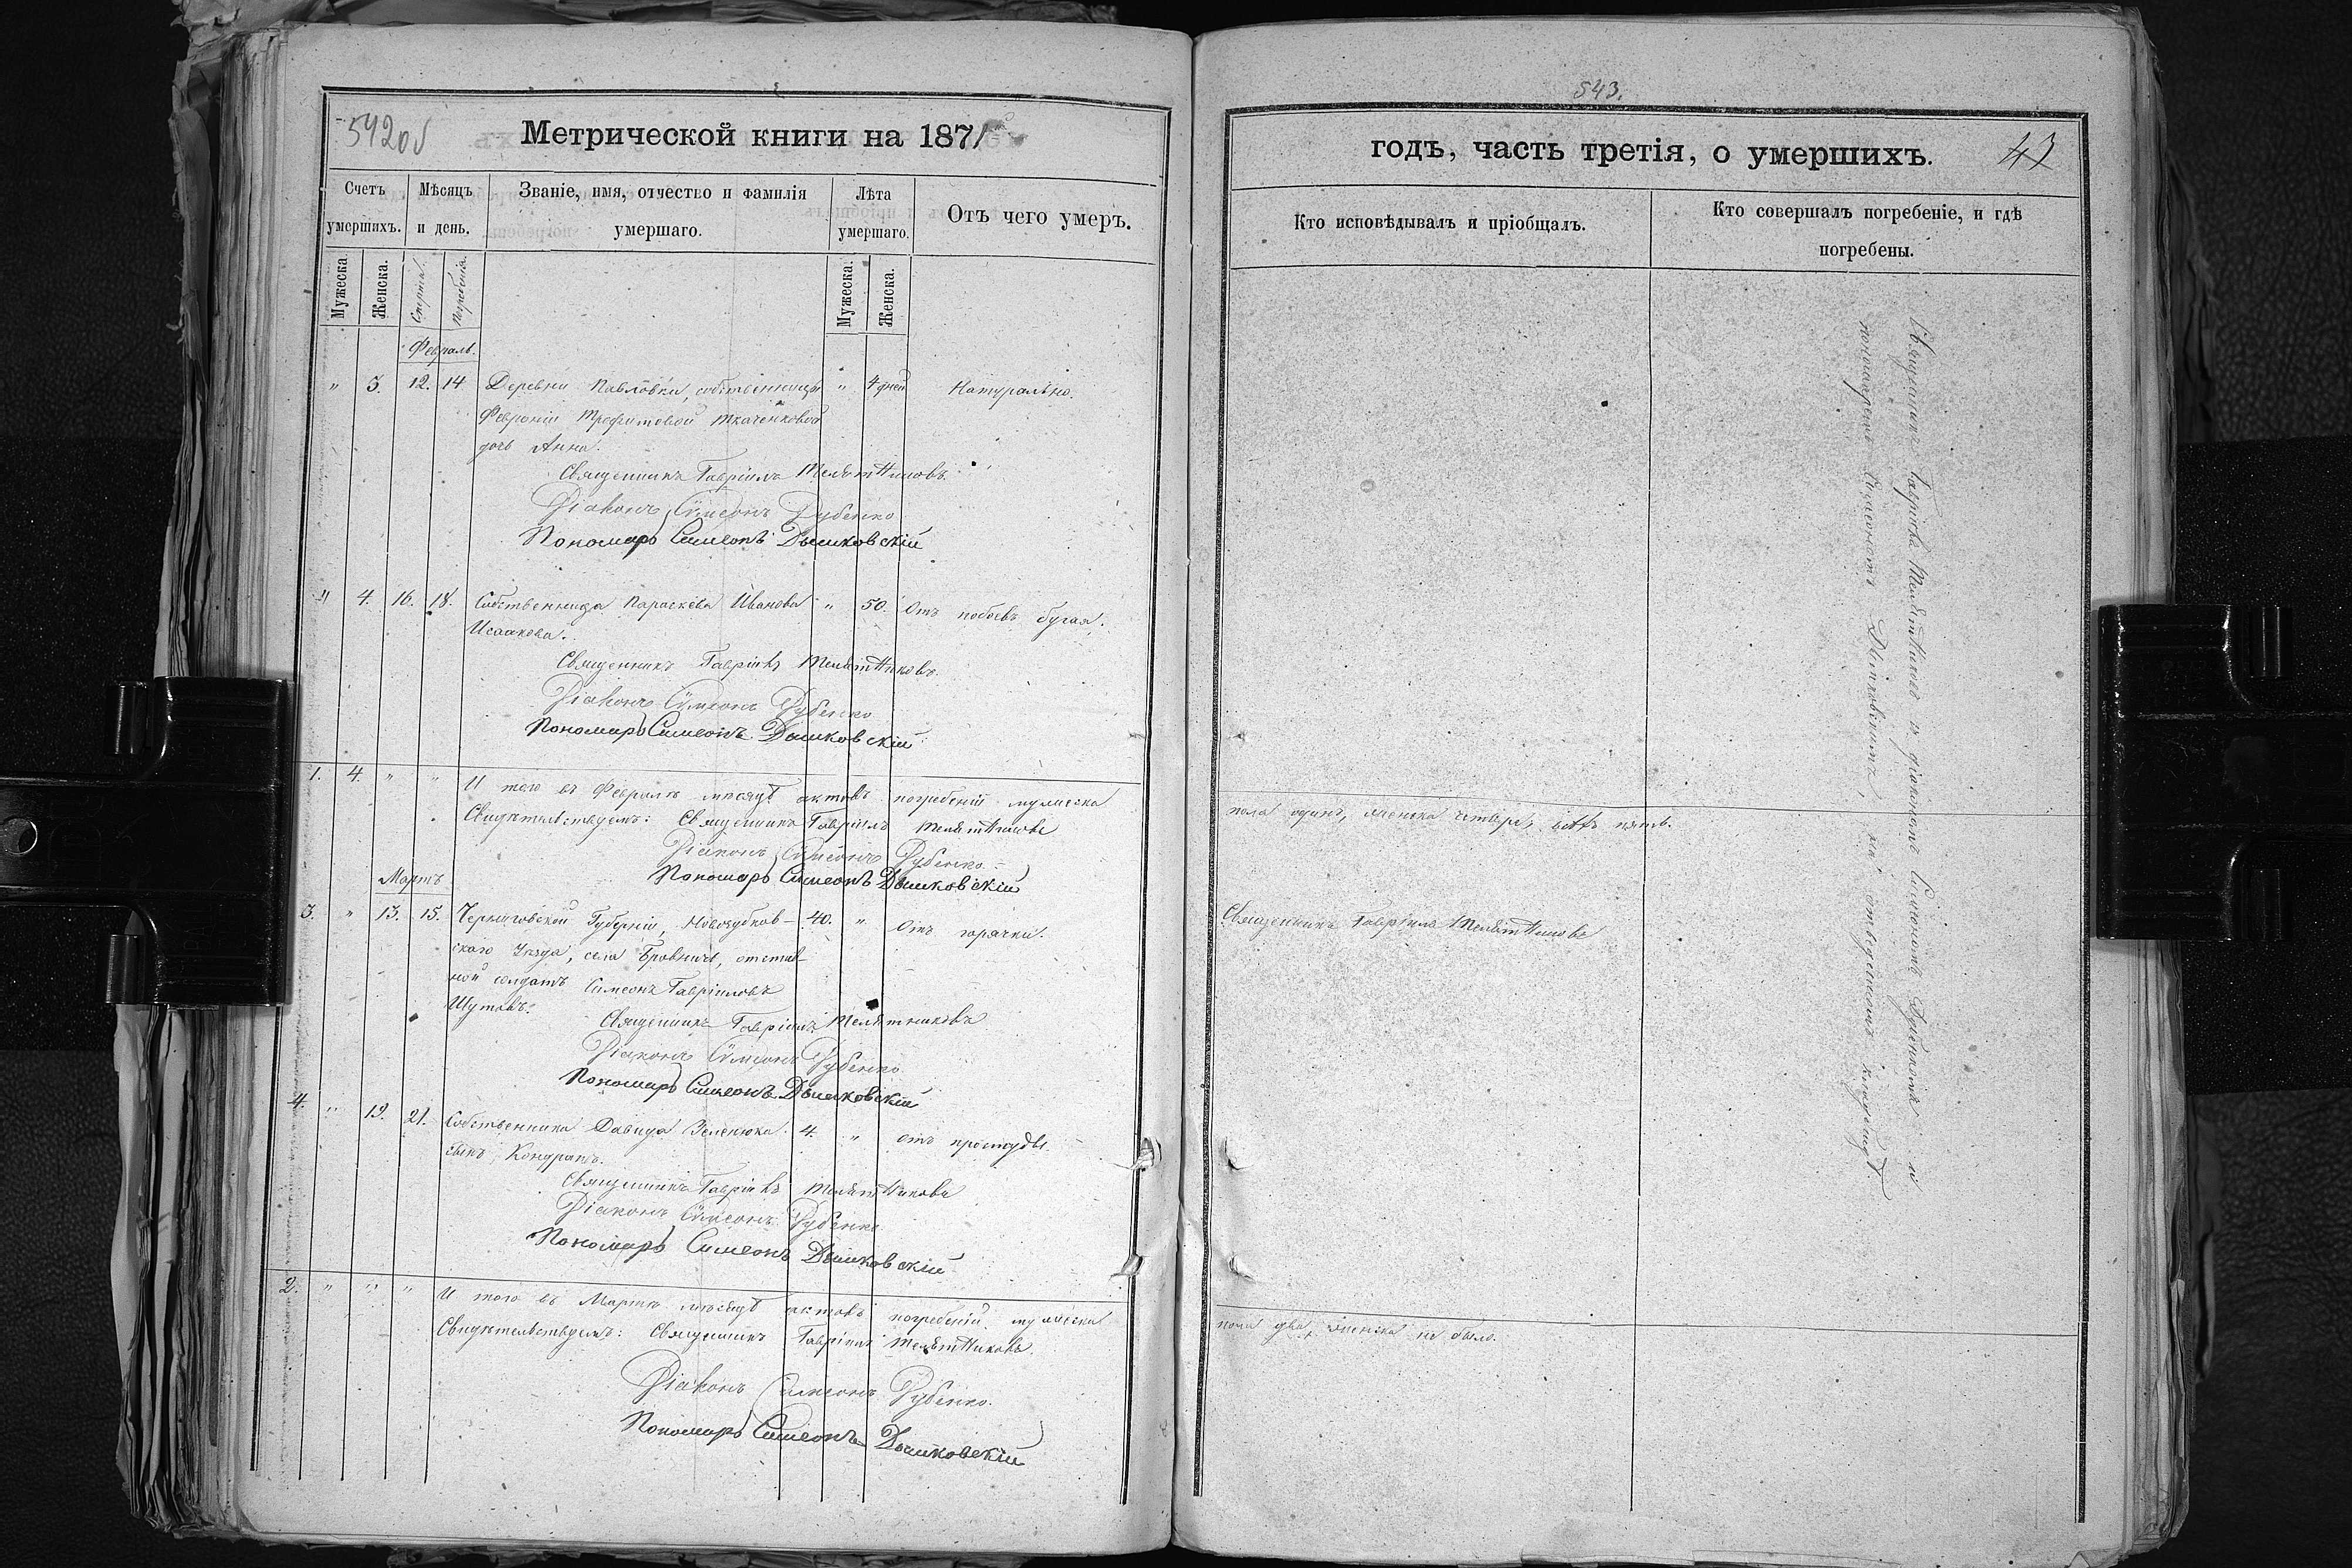 542об
Метрической книги на 1871
Счетъ умершихъ.
Мѣсяцъ и день.
Званіе, имя, отчество и фамилія умершаго.
Лѣта умершаго.
Отъ чего умеръ.
Мужеска.
Женска.
Смерти.
Погребенія.
Мужеска.
Женска.
Февраль.
" 3. 12. 14 Деревни Павловки, собственницы " 4 дней Натурально.
Февроніи Трофимовой Ткаченковой
дочь Анна.
Священникъ Гавріилъ Телѣтниковъ.
Діаконъ Сѵмеонъ Дубенко
Пономарь Симеонъ Дымковскій
" 4. 16. 18. Собственница Параскева Иванова " 50. Отъ побоевъ бугая.
Исаакова.
Священникъ Гавріилъ Телѣтниковъ.
Діаконъ Сѵмеонъ Дубенко
Пономарь Симеонъ Дымковскій
1. 4. " " И того въ Февралѣ мѣсяцѣ актовъ погребеній мужеска
Свидѣтельствуемъ: Священникъ Гавріилъ Телѣтниковъ
Діаконъ Сѵмеонъ Дубенко
Пономарь Симеонъ Дымковскій
Мартъ
3. " 13. 15. Черниговской Губерніи, Новозубков- 40. " Отъ горячки.
скаго Уѣзда, села Бровничь, отстав-
ной солдатъ Симеонъ Гавріиловъ
Шутовъ.
Священникъ Гавріилъ Телѣтниковъ
Діаконъ Сѵмеонъ Дубенко
Пономарь Симеонъ Дымковскій
4. " 19. 21. Собственника Давида Зеленюка 4. " отъ простуды
сынъ Кондратъ.
Священникъ Гавріилъ Телѣтниковъ
Діаконъ Сѵмеонъ Дубенко
Пономарь Симеонъ Дымковскій
2. " " " И того въ Мартѣ мѣсяцѣ актовъ погребеній мужеска
Свидѣтельствуемъ: Священникъ Гавріилъ Телѣтниковъ.
Діаконъ Симеонъ Дубенко.
Пономарь Симеонъ Дымковскій
543.
годъ, часть третія, о умершихъ.
43
Кто исповѣдывалъ и пріобщалъ.
Кто совершалъ погребеніе, и гдѣ погребены.
Священникъ Гавріилъ Телѣтниковъ съ діакономъ Симеономъ Дубенкомъ и
пономаремъ Симеономъ Дымковскимъ, на отведенномъ кладбищѣ.
пола одинъ, женска четыре, всѣхъ пять.
Священникъ Гавріилъ Телѣтниковъ
пола два, женска не было.